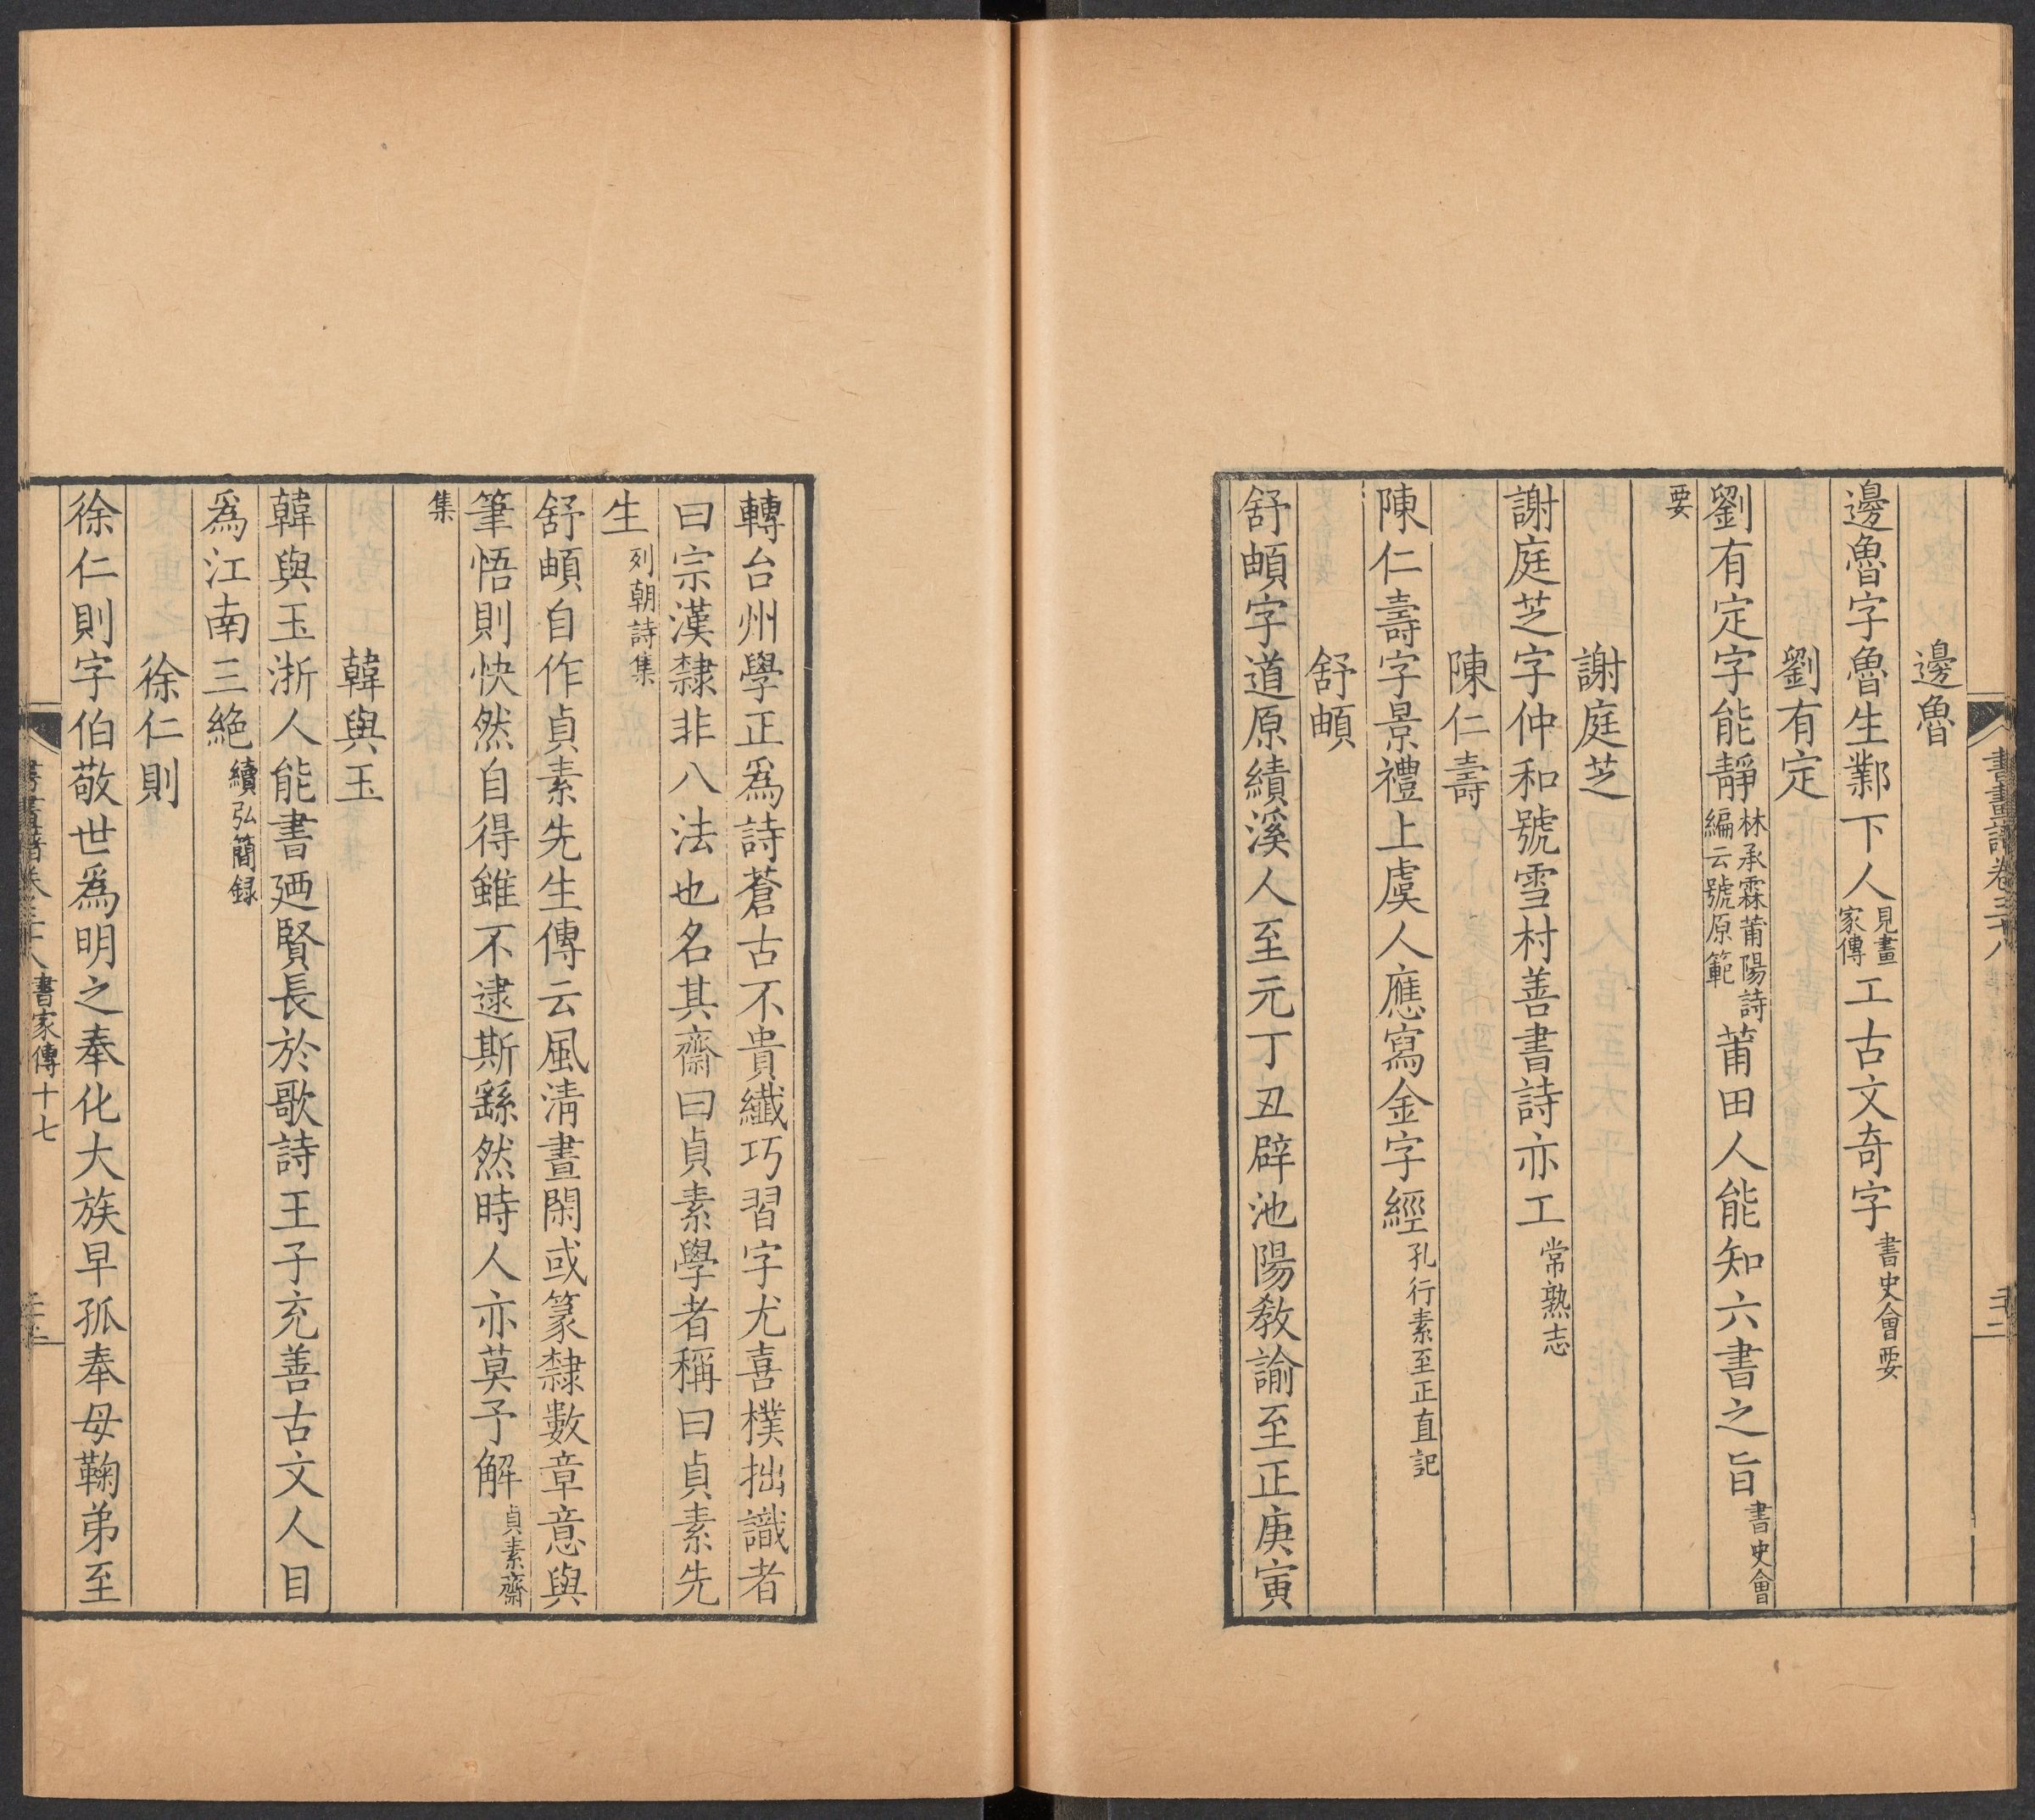 邊魯
邊魯字魯生鄴下人見畫家傳工古文奇字書史會要
劉有定
劉有定字能靜林承霖莆陽詩編云號原範莆田人能知六書之旨書史會
要
謝庭芝
謝庭芝字仲和號雪村善書詩亦工常熟志
陳仁壽
陳仁壽字景禮上虞人應寫金字經孔行素至正直記
舒頔
舒頔字道原績溪人至元丁丑辟池陽教諭至正庚寅
轉台州學正爲詩蒼古不貴纖巧習字尤喜樸拙識者
曰宗漢隸非八法也名其齋曰貞素學者稱曰貞素先
生列朝詩集
舒頔自作貞素先生傳云風清晝閑或篆隸數章意與
筆悟則快然自得雖不逮斯繇然時人亦莫予解貞素齋
集
韓與玉
韓與玉浙人能書廼賢長於歌詩王子充善古文人目
爲江南三絶續弘簡録
徐仁則
徐仁則字伯敬世爲明之奉化大族早孤奉母鞠弟至
書家傳十七